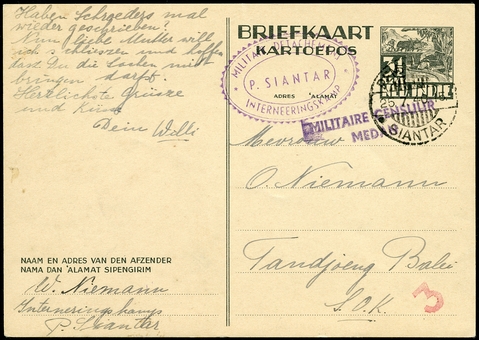 Haben Schroeders mal
wieder geschrieben?
Nun liebe Mutter will
ich schliessen und hoffen
dass Du die Sachen nicht
bringen darfst.
Herzlichste Grüsse
und Küsse
Dein Willi
NAAM EN ADRES VAN DEN AFZENDER
NAMA DAN 'ALAMAT SIPENGIRIM
W. Niemann
Interneringskamp
P. Siantar
BRIEFKAART
KARTOEPOS
ADRES 'ALAMAT
MILITAIR DETACHEMENT
P. SIANTAR
INTERNEERINGSKAMP
MILITAIRE CENSUUR
MEDAN
SIANTAR
Mevrouw
O. Niemann
Tandjoeng Balei
S.O.K.
3